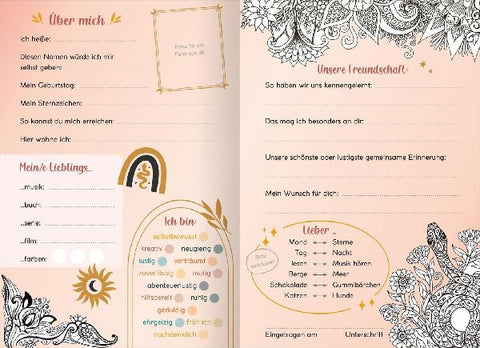 Über mich
Ich heiße:
Diesen Namen würde ich mir
selbst geben:
Mein Geburtstag:
Mein Sternzeichen:
So kannst du mich erreichen:
Hier wohne ich:
Mein/e Lieblings...
...musik:
...buch:
...serie:
...film:
...farben:
Ich bin:
selbstbewusst
kreativ neugierig
lustig verträumt
zuverlässig mutig
abenteuerlustig
hilfsbereit ruhig
geduldig
ehrgeizig fröhlich
nachdenklich
Unsere Freundschaft:
So haben wir uns kennengelernt:
Das mag ich besonders an dir:
Unsere schönste oder lustigste gemeinsame Erinnerung:
Mein Wunsch für dich:
Lieber ...
Mond Sterne
Tag Nacht
lesen Musik hören
Berge Meer
Schokolade Gummibärchen
Katzen Hunde
Eingetragen am Unterschrift